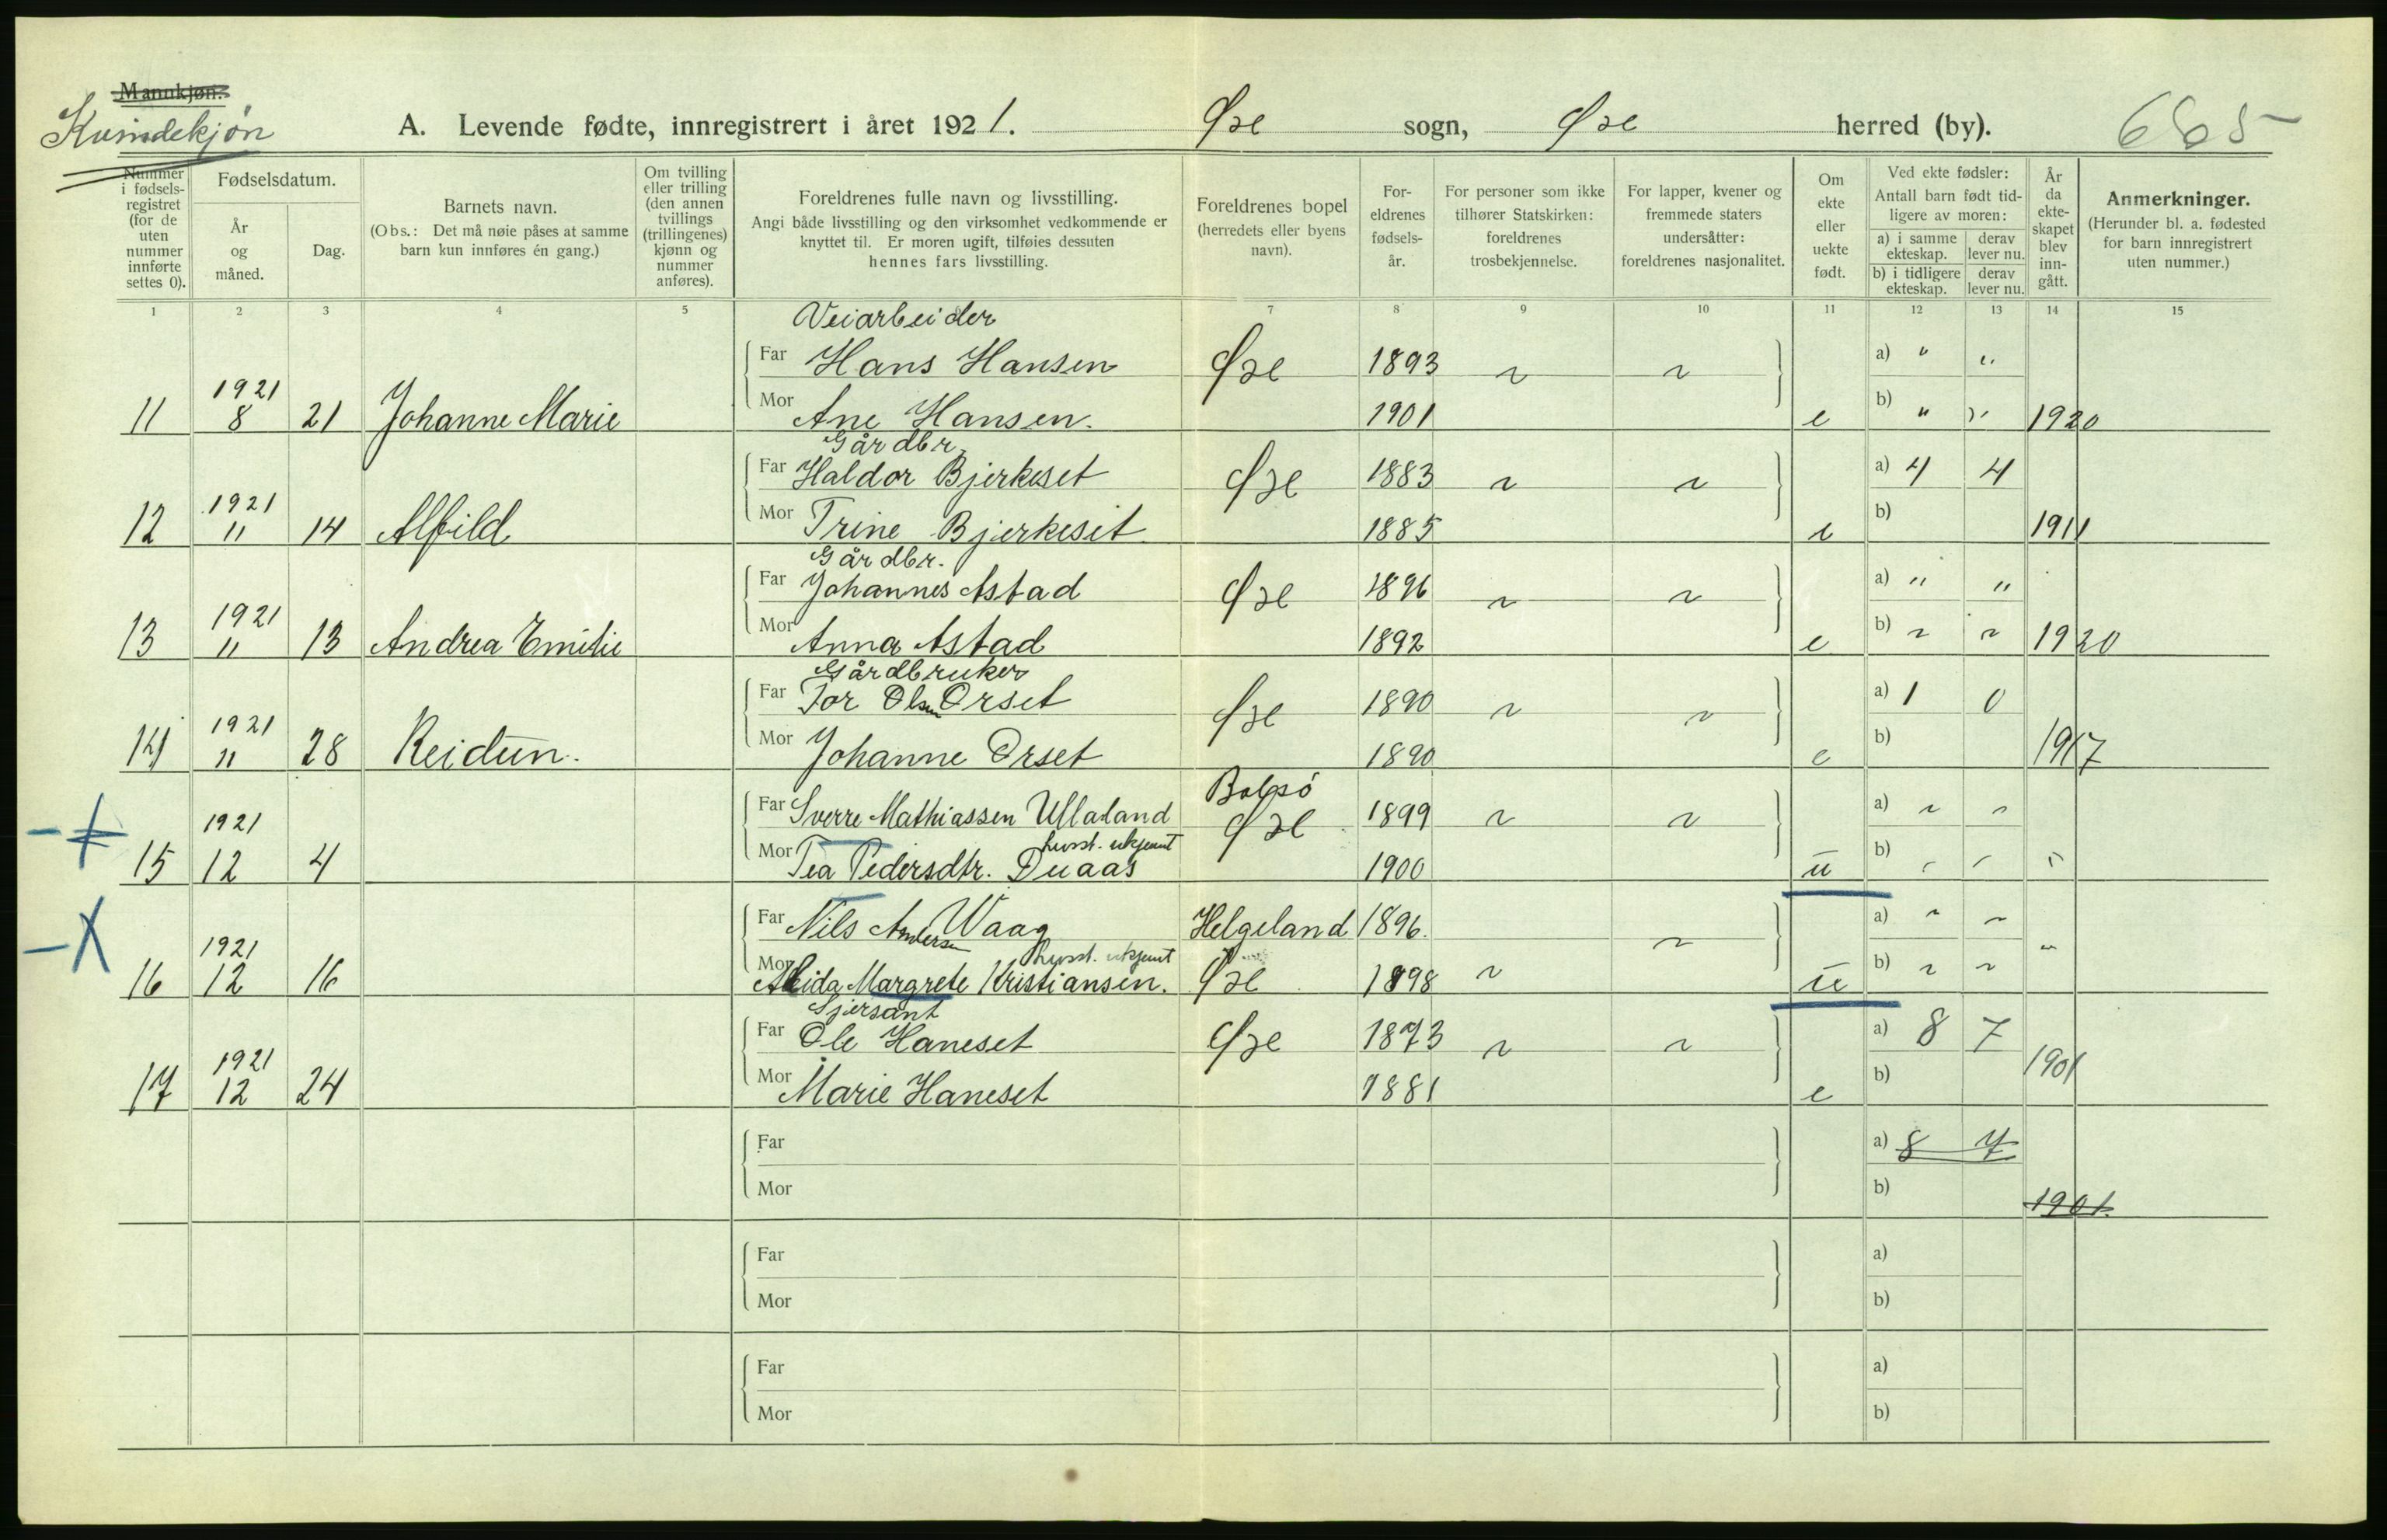 Mannkjøn.
Kvindekjøn
A. Levende fødte, innregistrert i året 1921. Øre sogn, Øre herred (by). 665
Nummer i fødsels-registret (for de uten nummer innførte settes 0).
Fødselsdatum.
År og måned.
Dag.
Barnets navn.
(Obs.: Det må nøie påses at samme barn kun innføres én gang.)
Om tvilling eller trilling (den annen tvillings (trillingenes) kjønn og nummer anføres).
Foreldrenes fulle navn og livsstilling.
Angi både livsstilling og den virksomhet vedkommende er knyttet til. Er moren ugift, tilføies dessuten hennes fars livsstilling.
Foreldrenes bopel (herredets eller byens navn).
For-eldrenes fødsels-år.
For personer som ikke tilhører Statskirken: foreldrenes trosbekjennelse.
For lapper, kvener og fremmede staters undersåtter: foreldrenes nasjonalitet.
Om ekte eller uekte født.
Ved ekte fødsler: Antall barn født tid-ligere av moren:
a) i samme ekteskap. derav lever nu.
b) i tidligere ekteskap. derav lever nu.
År da ekte-skapet blev inn-gått.
Anmerkninger.
(Herunder bl. a. fødested for barn innregistrert uten nummer.)
1 2 3 4 5 7 8 9 10 11 12 13 14 15
Veiarbeider
Far Hans Hansen Øre 1893 " " a) " "
1921
11 8 21 Johanne Marie Mor Ane Hansen. 1901 e b) " " 1920
Gårdbr.
Far Haldor Bjerkeset Øre 1883 " " a) 4 4
1921
12 11 14 Alfild Mor Trine Bjerkeset 1885 e b) 1911
Gårdbr.
Far Johannes Astad Øre 1896 " " a) " "
1921
13 11 13 Andrea Emilie Mor Anna Astad 1892 e b) " " 1920
Gårdbruker
Far Tor Olsen Orset Øre 1890 " " a) 1 0
1921
14 11 28 Reidun. Mor Johanne Orset 1890 e b) 1917
Bolsö
Far Sverre Mathiassen Ullaland Øre 1899 " " a) " "
1921
livsst. ukjennt
15 12 4 Mor Tea Pedersdtr. Duaas 1900 u b) " " "
Far Nils Andersen Waag Helgeland 1896. " a) " "
1921
livsst. ukjennt
16 12 16 Mor Aleida Margrete Kristiansen. Øre 1898 " u b) " " "
Sjersant
Far Ole Haneset Øre 1873 " " a) 8 7
1921
17 12 24 Mor Marie Haneset 1881 e b) 1901
Far a) 8 7
Mor b) 1901.
Far a)
Mor b)
Far a)
Mor b)